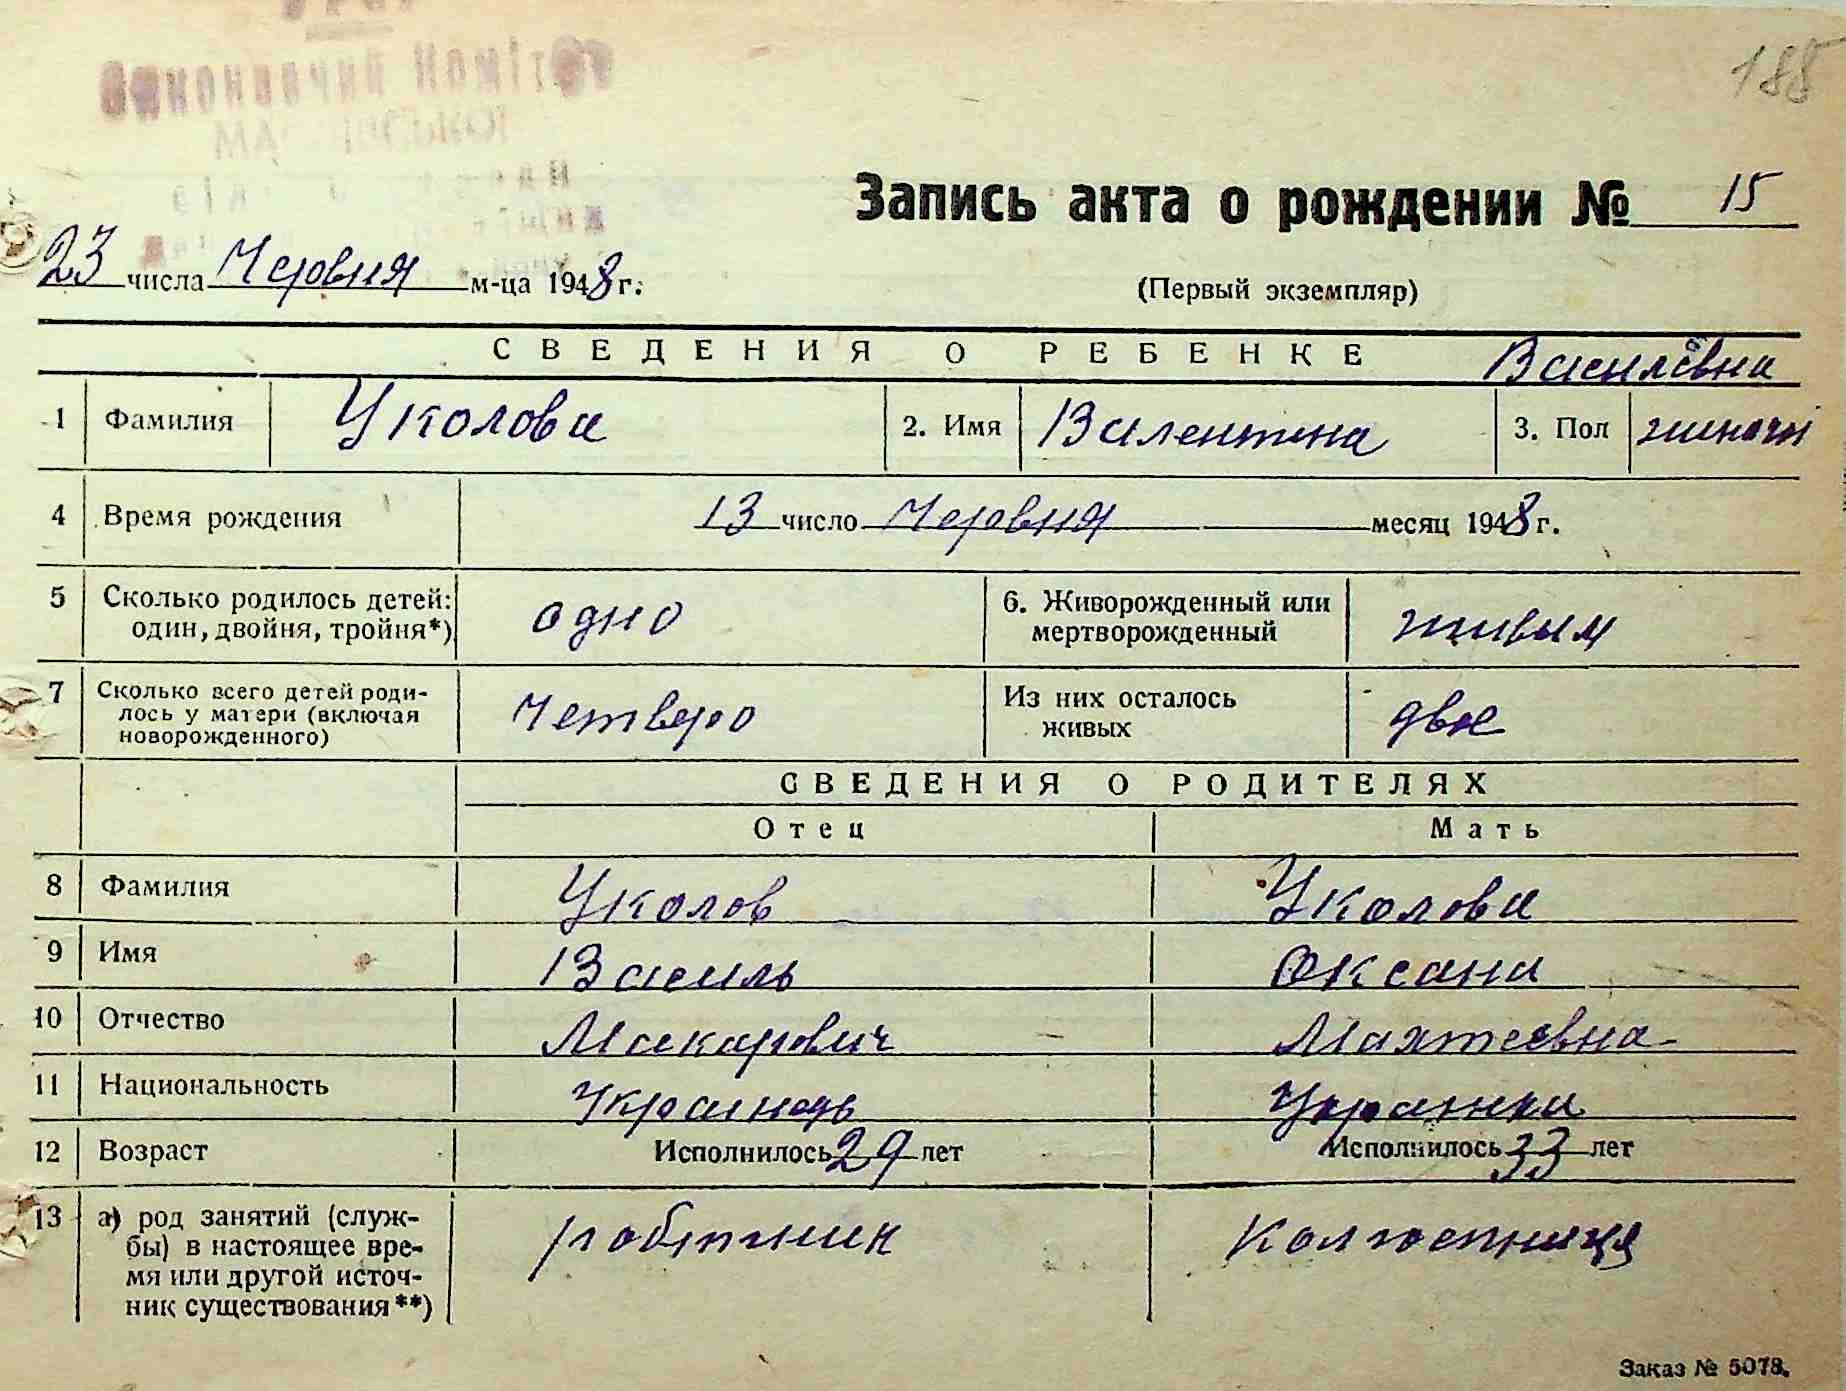 188
Запись акта о рождении № 15
23 числа Червня м-ца 1948 г.
(Первый экземпляр)
СВЕДЕНИЯ О РЕБЕНКЕ Василёвна
1 Фамилия Уколова 2. Имя Валентина 3. Пол жиночи
4 Время рождения 13 число Червня месяц 1948 г.
5 Сколько родилось детей: один, двойня, тройня*) одно 6. Живорожденный или мертворожденный живым
7 Сколько всего детей родилось у матери (включая новорожденного) Четверо Из них осталось живых двое
СВЕДЕНИЯ О РОДИТЕЛЯХ
Отец Мать
8 Фамилия Уколов Уколова
9 Имя Василь Оксана
10 Отчество Макарович Махтеевна
11 Национальность Українець Українка
12 Возраст Исполнилось 29 лет Исполнилось 33 лет
13 а) род занятий (служ-
бы) в настоящее вре-
мя или другой источ-
ник существования**) робітник Колгоспниця
Заказ № 5078.